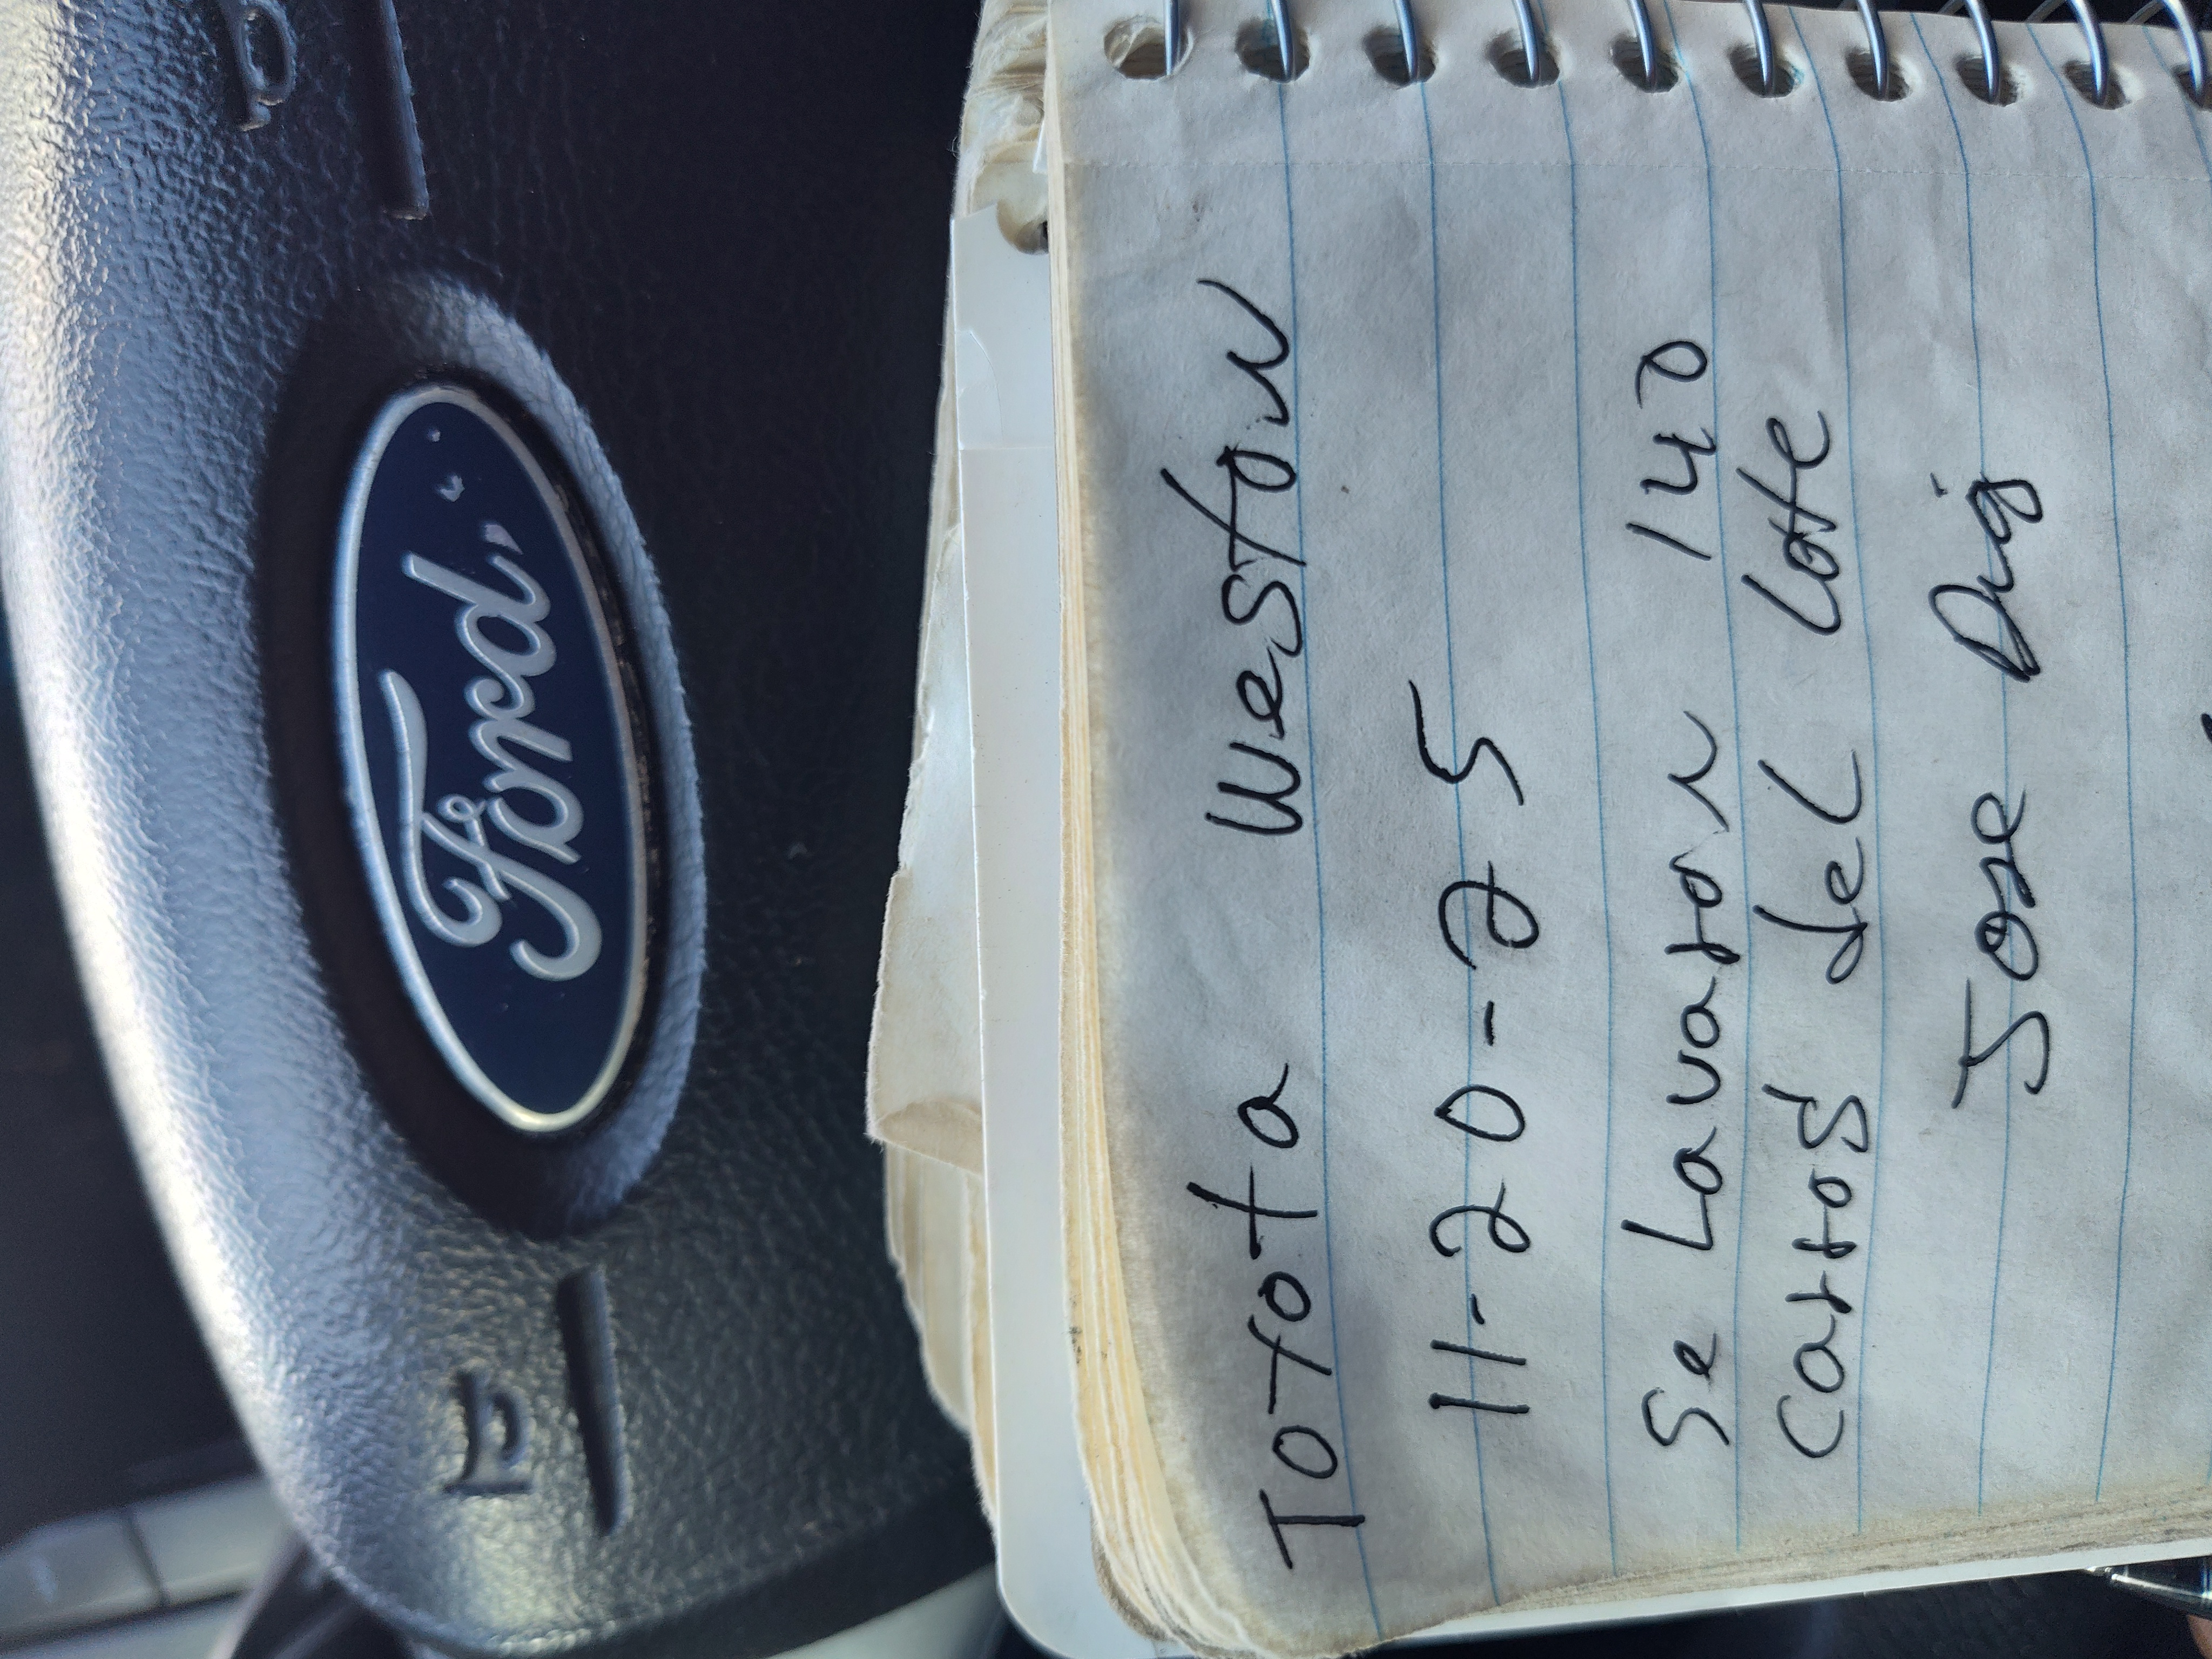 Ford
Toyota Weston
11-20-25
Se Lavaron 140
Carros del Lote
Jose Dig